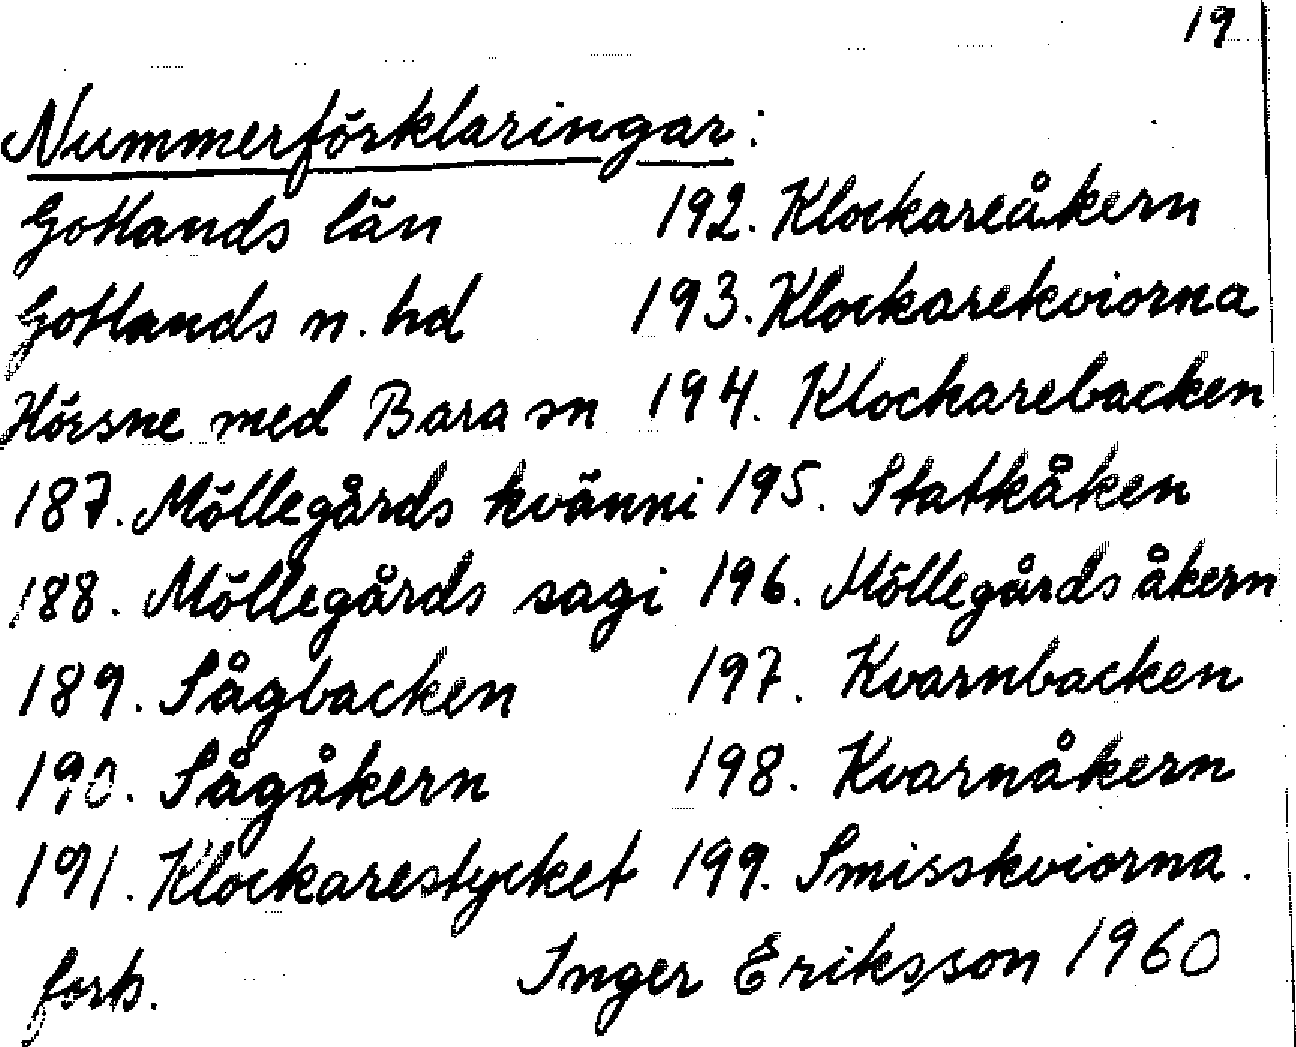 19
Nummerförklaringar:
Gotlands län
Gotlands n. hd
Hörsne med Bara sn
187. Möllegårds kvänni
188. Möllegårds sagi
189. Sågbacken
190. Sågåkern
191. Klockarestycket
192. Klockareåkern
193. Klockarekviorna
194. Klockarebacken
195. Statkåken
196. Möllegårds åkern
197. Kvarnbacken
198. Kvarnåkern
199. Smisskviorna.
forts.
Inger Eriksson 1960